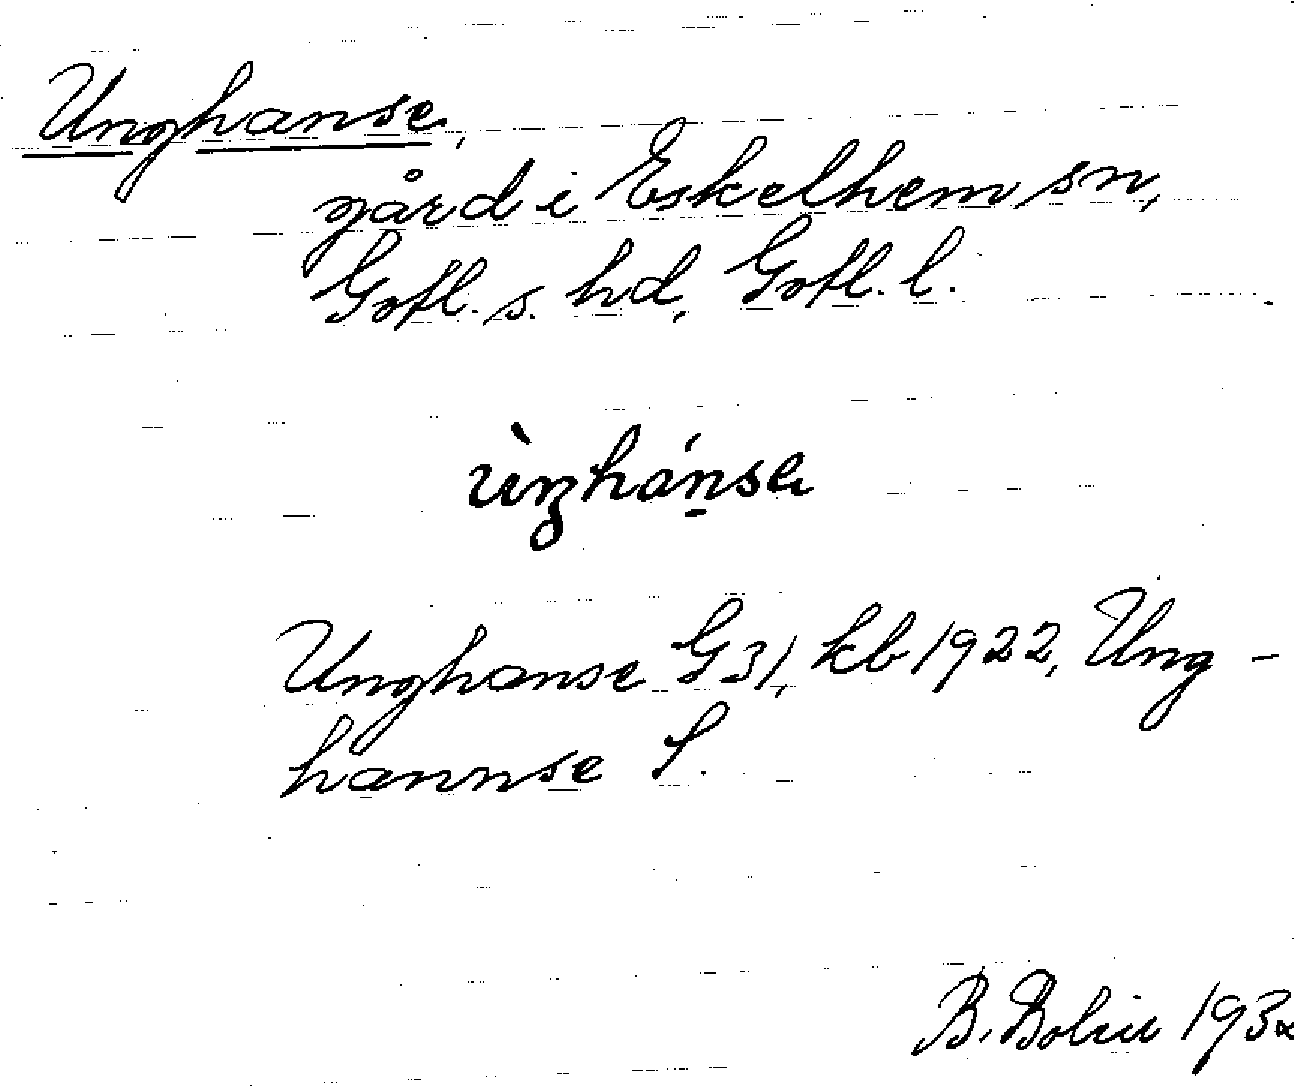 Unghanse,
gård i Eskelhem sn,
Gotl. s. hd, Gotl. l.
ùŋhánsa
Unghanse G31, kb 1922, Ung-
hannse S.
B. Bolin 193